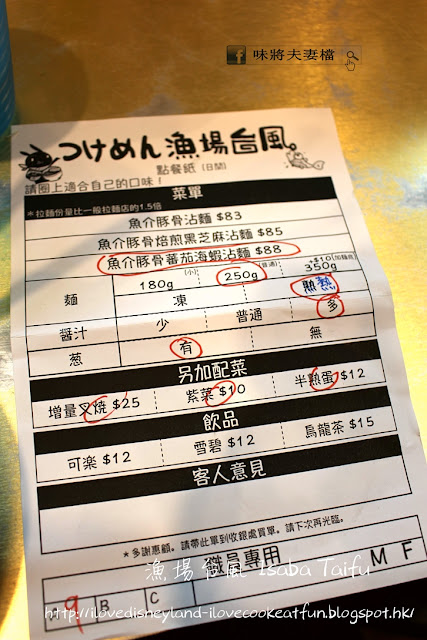 味將夫妻檔
つけめん漁場台風
點餐紙 (日間)
請圈上適合自己的口味！
菜單
*拉麵份量比一般拉麵店的1.5倍
魚介豚骨沾麵 $83
魚介豚骨焙煎黑芝麻沾麵 $85
魚介豚骨蕃茄海蝦沾麵 $88
麵 180g (小) 250g (普通) 350g +$10(加麵底)
凍 熱
醬汁 少 普通 多
葱 有 無
另加配菜
增量叉燒 $25 紫菜 $10 半熟蛋 $12
飲品
可樂 $12 雪碧 $12 烏龍茶 $15
客人意見
*多謝惠顧。請帶此單到收銀處買單。請下次再光臨。
職員專用
漁場台風 Isaba Taifu
9 B C M F
http://ilovedisneyland-ilovecookeatfun.blogspot.hk/